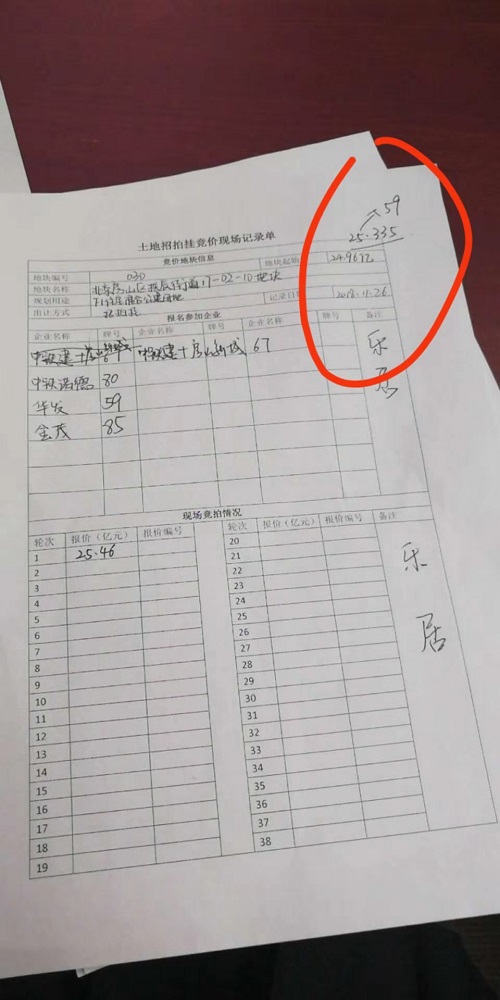 59
25.335
土地招拍挂竞价现场记录单
竞价地块信息
地块编号 030 地块起始 24.96亿
地块名称 北京房山区拱辰街道17-02-10地块
规划用途 F1住宅混合公建用地 记录日期 2018.11.26
出让方式 招拍挂
报名参加企业
企业名称 牌号 企业名称 牌号 企业名称 牌号 备注
中铁建+房山 中铁建+房山新城 67 乐
中铁诺德 80 居
华发 59
金茂 85
现场竞拍情况
轮次 报价（亿元） 报价编号 轮次 报价（亿元） 报价编号 备注
1 25.46 20
2 21 乐
3 22
4 23
5 24
6 25 居
7 26
8 27
9 28
10 29
11 30
12 31
13 32
14 33
15 34
16 35
17 36
18 37
19 38